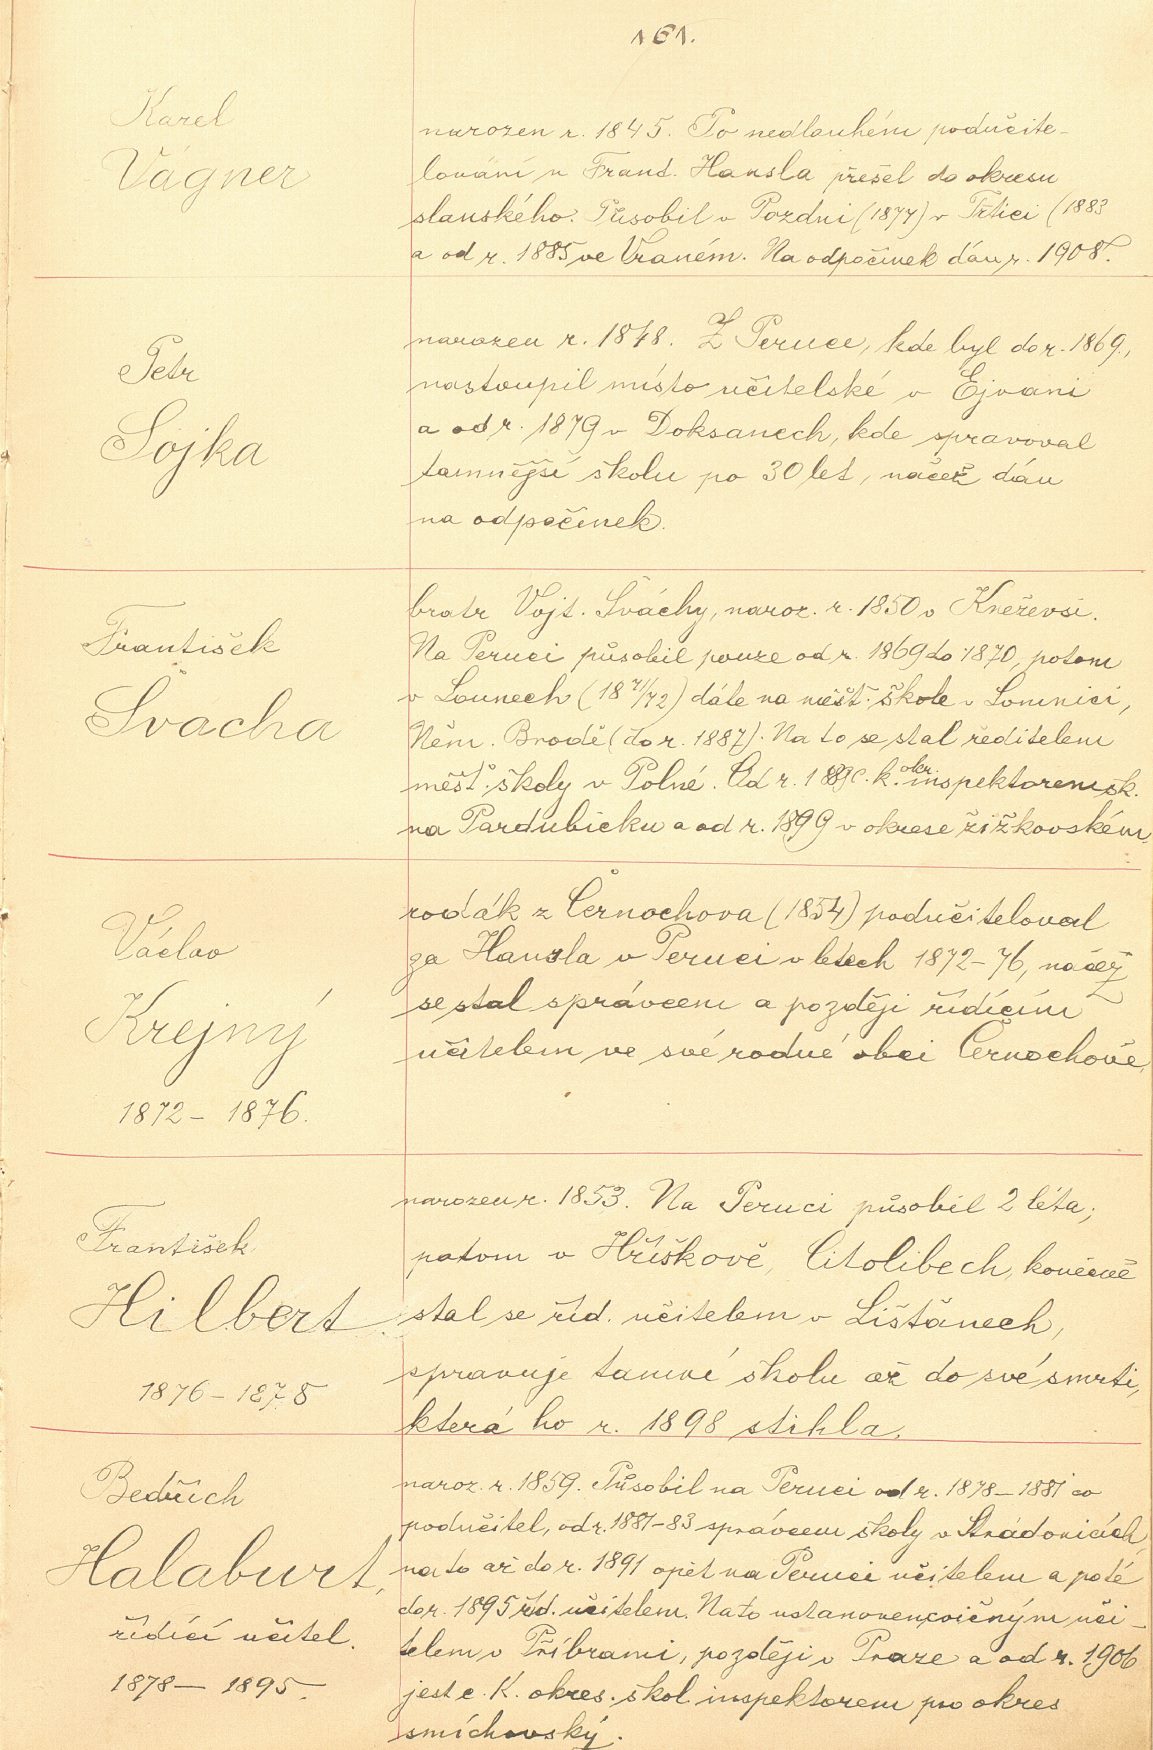 161.
Karel
Vágner
narozen r. 1845. Po nedlouhém podučite-
lování u Frand. Hansla přešel do okresu
slanského. Působil v Pozdni (1877) v Třtici (1883
a od r. 1885 ve Vraném. Na odpočinek dán r. 1908.
Petr
Sojka
narozen r. 1848. Z Peruce, kde byl do r. 1869.,
nastoupil místo učitelské v Ejvani
a od r. 1879 v Doksanech, kde spravoval
tamnější školu po 30 let, načež dán
na odpočinek.
František
Švácha
bratr Vojt. Šváchy, naroz. r. 1850 v Kněževsi.
Na Peruci působil pouze od r. 1869 do 1870, potom
v Lounech (18 71/72) dále na měšť. škole v Lomnici,
Něm. Brodě (do r. 1887). Na to se stal ředitelem
měšť. školy v Polné. Od r. 1890 c. k. okr. inspektorem šk.
na Pardubicku a od r. 1899 v okrese žižkovském.
Václav
Krejný
1872 – 1876.
rodák z Černochova (1854) podučiteloval
za Hansla v Peruci v letech 1872–76, načež
se stal správcem a později řídícím
učitelem ve své rodné obci Černochově.
František
Hilbert
1876 – 1878
narozen r. 1853. Na Peruci působil 2 léta;
potom v Hříškově, Citolibech, konečně
stal se říd. učitelem v Lištanech,
spravuje tamní školu až do své smrti,
která ho r. 1898 stihla.
Bedřich
Halaburt,
řídící učitel.
1878 – 1895.
naroz. r. 1859. Působil na Peruci od r. 1878–1881 co
podučitel, od r. 1881–83 správcem školy v Stradonicích,
na to až do r. 1891 opět na Peruci učitelem a poté
do r. 1895 říd. učitelem. Na to ustanoven cvičným uči-
telem v Příbrami, později v Praze a od r. 1906
jest c. K. okres. škol inspektorem pro okres
smíchovský.